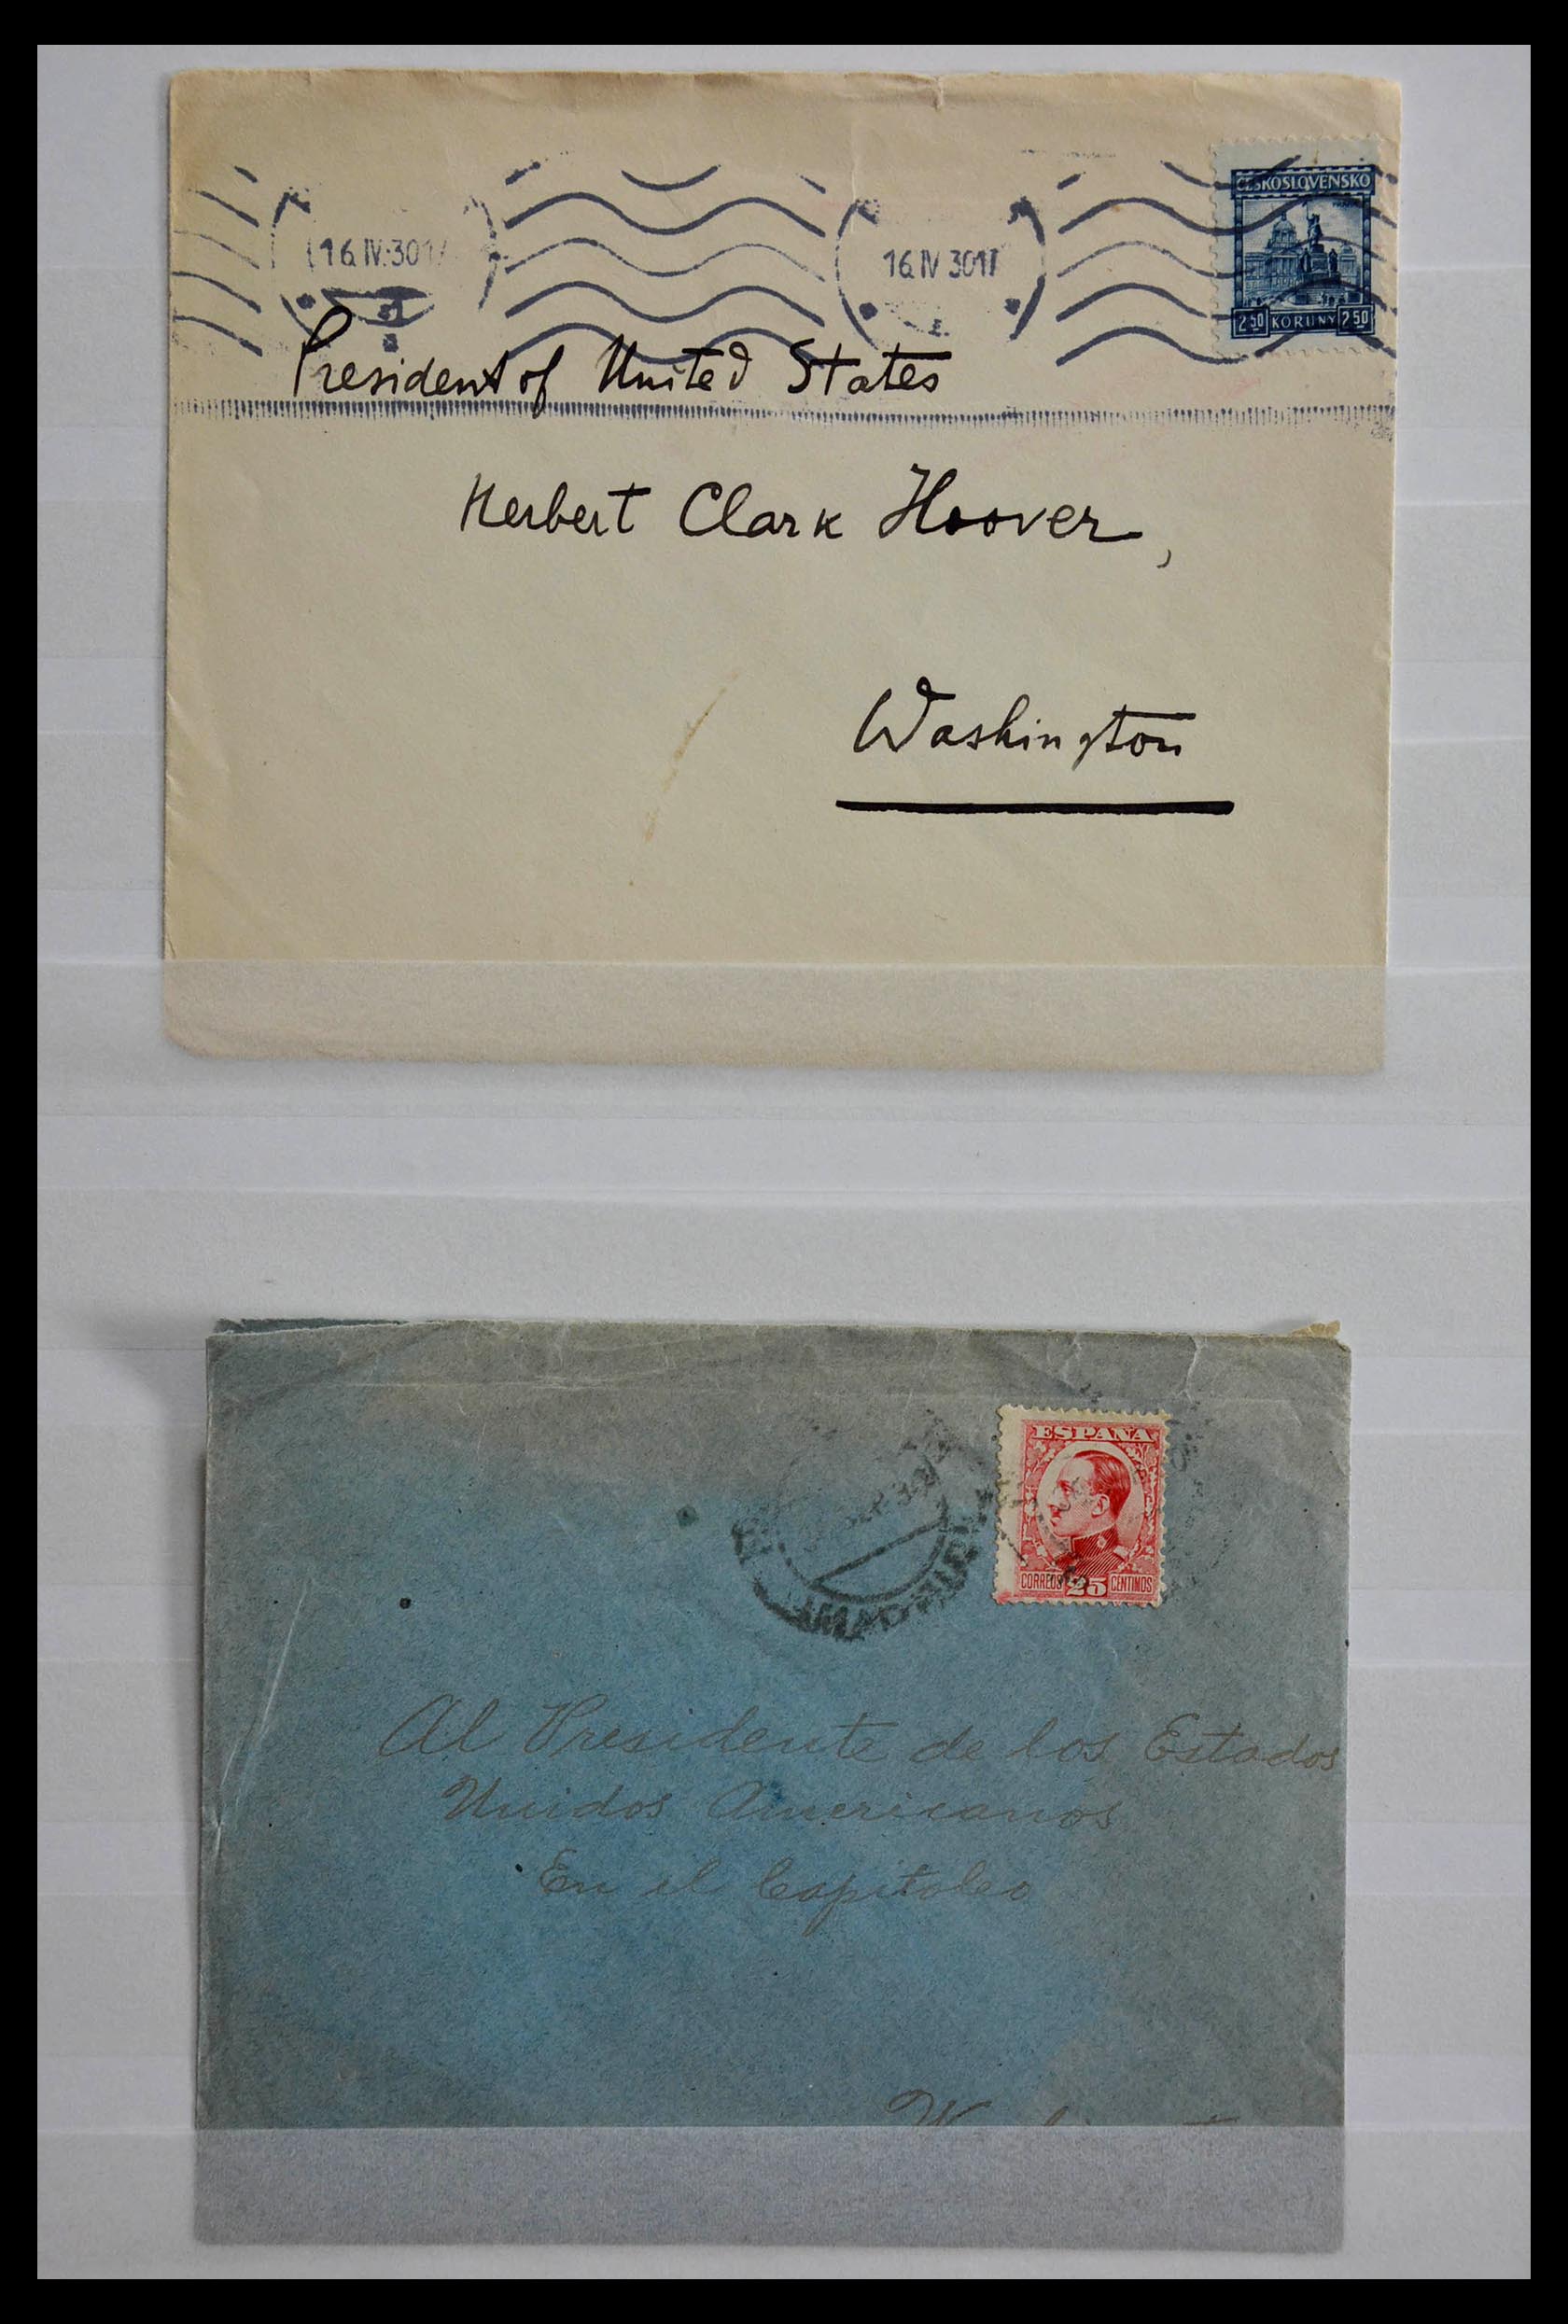 16.IV.30 17
16.IV 30 17
ČESKOSLOVENSKO
2 50 KORUNY 2 50
President of United States
Herbert Clark Hoover,
Washington
ESPAÑA
CORREOS 25 CENTIMOS
MADRID
Al Presidente de los Estados
Unidos Americanos
En el Capitoleo